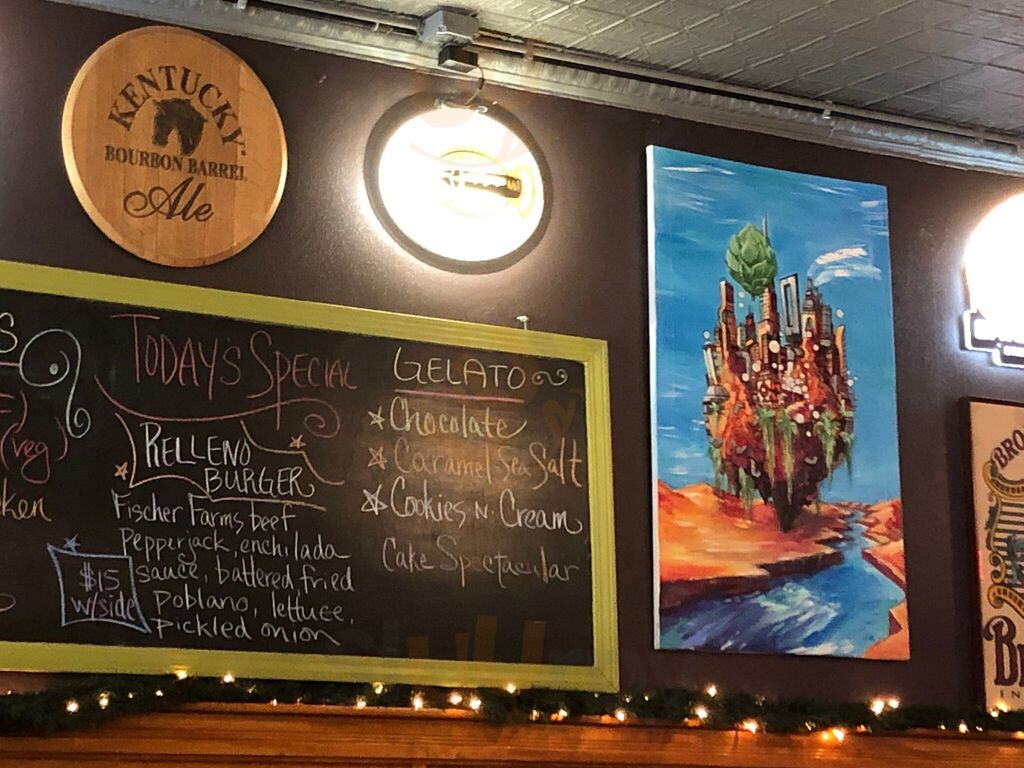 KENTUCKY
BOURBON BARREL
Ale
S
(veg)
ken
TODAY'S SPECIAL
RELLENO
BURGER
Fischer Farms beef
Pepperjack, enchilada
sauce, battered fried
poblano, lettuce,
pickled onion
$15
w/side
GELATO
Chocolate
Caramel Sea Salt
Cookies N. Cream
Cake Spectacular
BRO
B
IN